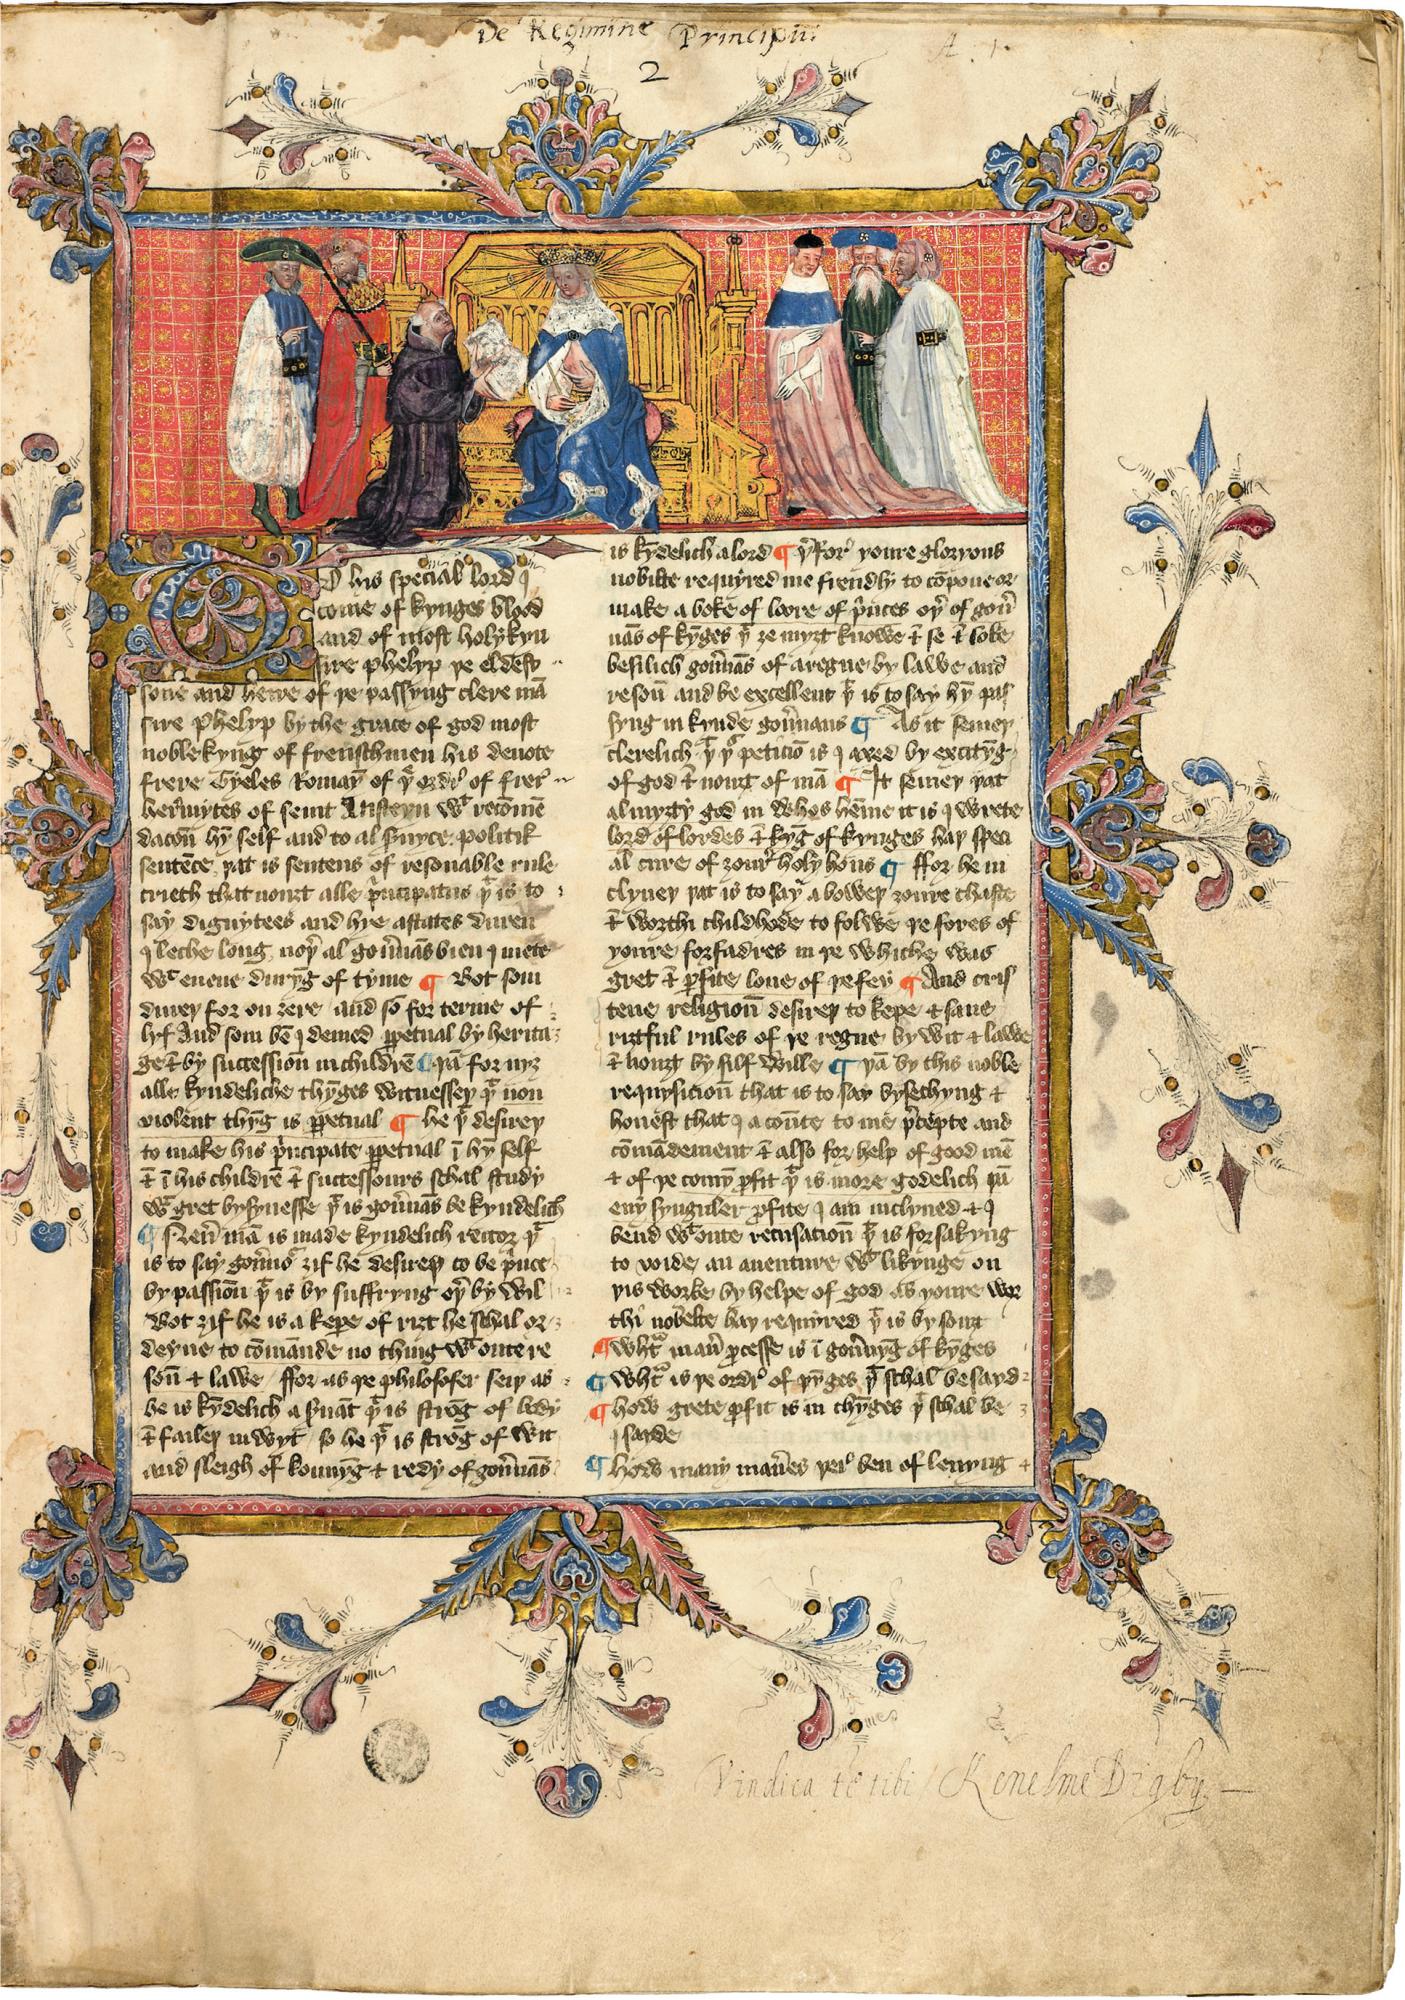 De Regimine Principū:
A. 1
2
To his special lord ⁊
come of kynges blood
and of most holy kyn
sire Phelyp þe eldest
sone and heire of þe passyng clere mā
sire Phelyp by the grace of god most
noble kyng of frenschmen his deuote
frere Gyles Romayn of þͤ ordrͤ of frer
hermytes of seint Austeyn wͭ recōmē
dacōn hȳ self and to al seruyce. politik
sentēce. þat is sentens of resonable rule
crieth that nouȝt alle pͥncipatus þͭ is to
say dignytees and hye astates duren
yleche long. noþͬ al gou̓nās bien ymete
wͭ euene duryȝg of tyme ¶ Bot som
dureþ for on ȝere. and so for terme of
lyf And som bē ydemed ꝑpetual by herita
ge ⁊ by succession in childrē ¶ þā for nyȝ
alle kyndeliche thyngis witnesseþ þͭ non
violent thȳg is ꝑpetual ¶ he þͭ desireþ
to make his pͥncipate ꝑpetual ī hȳ self
⁊ ī his childrē ⁊ successours schal study
wͭ gret bysynesse þͭ is gou̓nās be kyndelich
¶ Neu̓ mā is made kyndelich rector þͭ
is to say gou̓nͬ ȝif he desireþ to be pͥnce
by passioū þͭ is by suffryng oþͬ by wil
Bot ȝif he is a kepe of riȝt he schal or
deyne to cōmande no thing wͭoute re
son̄ ⁊ lawe. ffor as þe philosofer seiþ as
he is kȳdelich a seruāt þͭ is strōg of body
⁊ faileþ in wyt. so he þͭ is strōg of wit
and sleigh of konnȳg ⁊ redy of gou̓nās
is kȳdelich a lord ¶ Þͬforͤ youre gloryous
noblete requyred me frendly to cōpone or
make a boke of loore of pͥnces oþͬ of gou̓
nās of kȳges þͭ ȝe myȝt knowe ⁊ se ⁊ loke
besilich gou̓nās of a regne by lawe and
reson̄ and be excellent þͭ is to say hȳ pas
syng in kynde gou̓nans ¶ As it semeþ
clerelich þͭ þͥ peticiō is yaxed by excitȳg
of god ⁊ nouȝt of mā ¶ It semeþ þat
almyȝty god in whos hēme it is ywrete
lord of lordes ⁊ kȳg of kynges haþ speci
al cure of ȝourͤ holy hous ¶ ffor he in
clyneþ þat is to say a boweþ ȝoure chaste
⁊ worthi childhede to folwe þe fores of
youre forfadres in þe whiche was
gret ⁊ ꝑfite loue of þe fey ¶ And cris
tene religion̄ desireþ to kepe ⁊ saue
riȝtful rules of þe regne by wit ⁊ lawe
⁊ nouȝt by silf wille ¶ þā by this noble
requysicion̄ that is to say bysechyng ⁊
honest that y a counte to me pͬcepte and
cōmādement ⁊ also for help of good mē
⁊ of þe comȳ ꝑfit þͭ is more godelich þā
eny synguler ꝑfite y am inclyned ⁊ y
bend wͭoute recusation̄ þͭ is forsakyng
to voide an auenture wͭ likynge on
þis worke by helpe of god as youre wor
thi noblete haþ requyred þͭ is by souȝt
¶ whͭ manͬ ꝓcesse is ī gou̓nȳg of kȳges
¶ whͭ is þe ordrͤ of þȳges þͭ schal be sayd
¶ how grete ꝓfit is in thȳges þͭ schal be
ysayde
¶ How many man̓es þerͤ ben of leuyng ⁊
Vindica te tibi Kenelme Digby